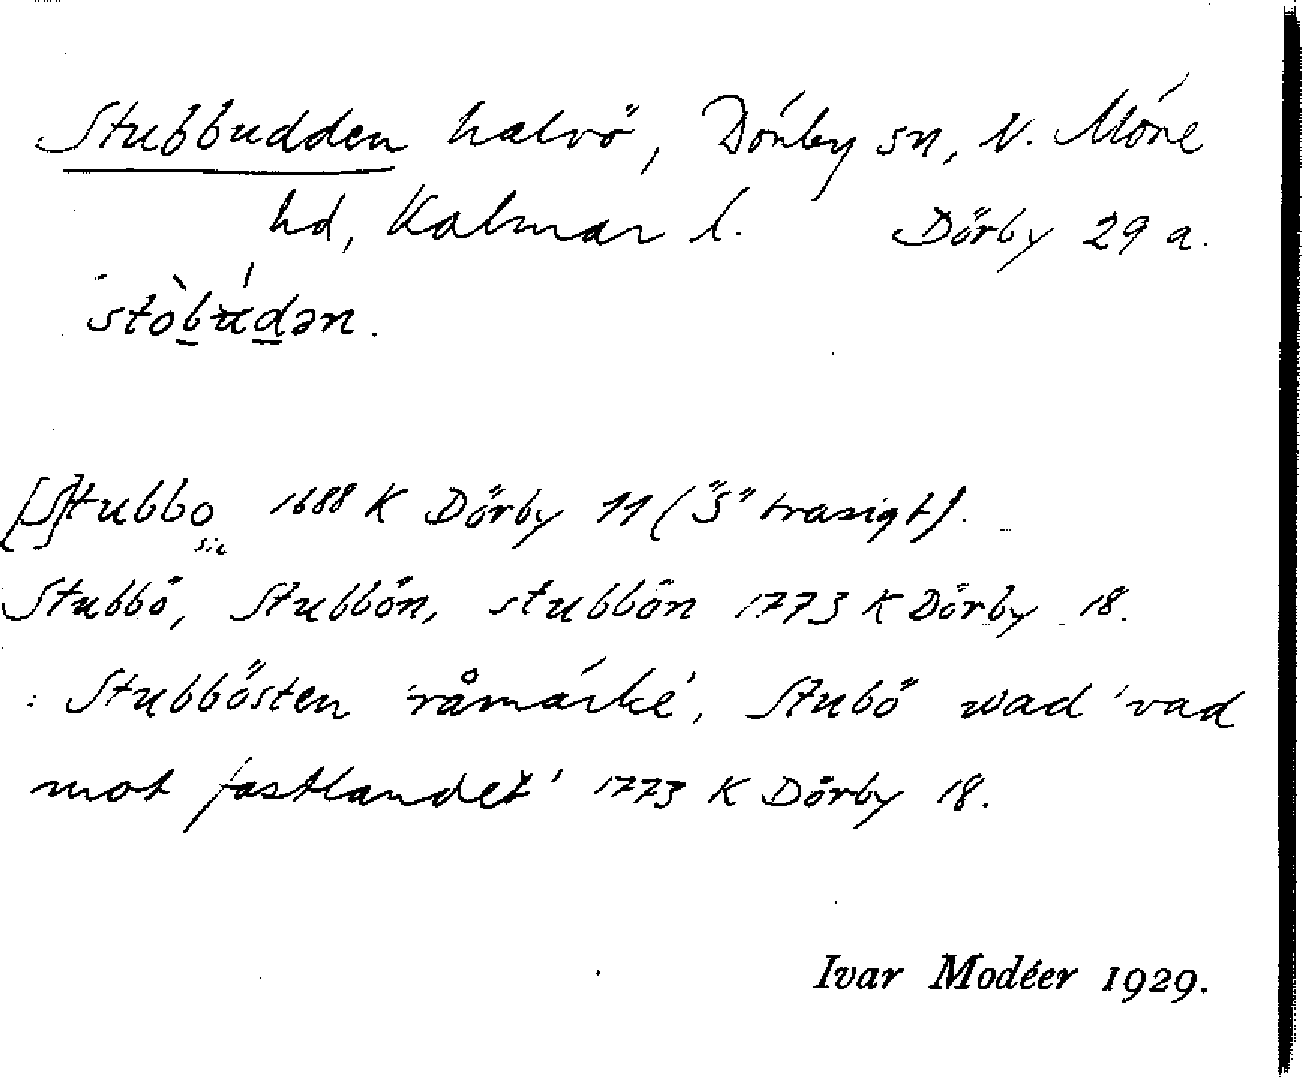 Stubbudden halvö, Dörby sn, N. Möre
hd, Kalmar l. Dörby 29 a.
stòbúdən.
[S]tubbo 1688 K Dörby 11 ("S" trasigt).
sic
Stubbö, Stubbön, stubbön 1773 K Dörby 18.
: Stubbösten 'råmärke', Stubö wad 'vad
mot fastlandet' 1773 K Dörby 18.
Ivar Modéer 1929.